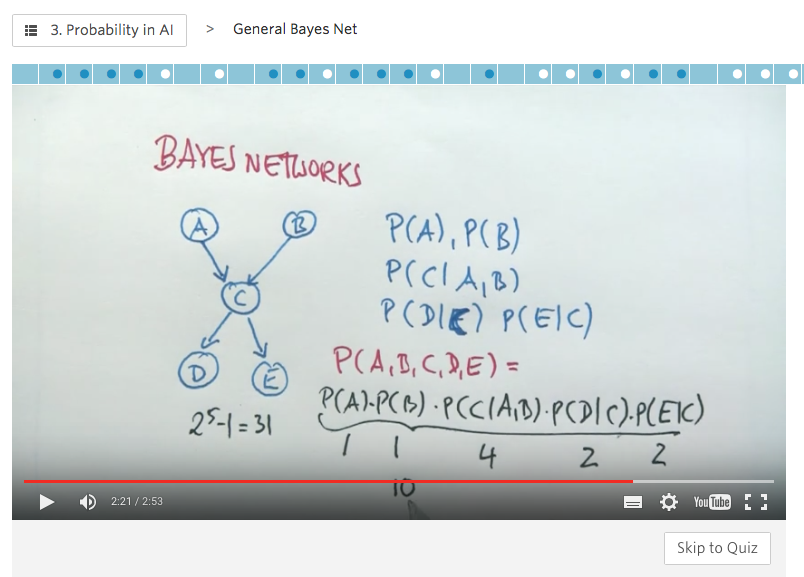 3. Probability in AI > General Bayes Net
BAYES NETWORKS
A B
P(A), P(B)
P(C|A,B)
C
P(D|C) P(E|C)
P(A,B,C,D,E) =
D E
P(A)·P(B)·P(C|A,B)·P(D|C)·P(E|C)
2⁵-1=31
1 1 4 2 2
10
2:21 / 2:53
YouTube
Skip to Quiz